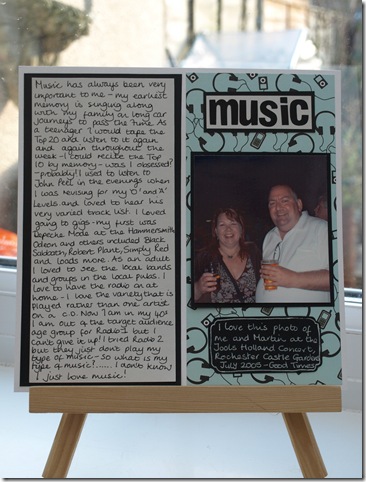 Music has always been very
important to me - my earliest
memory is singing along
with my family on long car
journeys to pass the time. As
a teenager I would tape the
Top 20 and listen to it again
and again throughout the
week - I could recite the Top
10 by memory - was I obsessed?
- probably! I used to listen to
John Peel in the evenings when
I was revising for my 'O' and 'A'
Levels and loved to hear his
very varied track list. I loved
going to gigs - my first was
Depeche Mode at the Hammersmith
Odeon and others included Black
Sabbath, Robert Plant, Simply Red
and loads more. As an adult
I loved to see the local bands
and groups in the local pubs. I
love to have the radio on at
home - I love the variety that is
played rather than one artist
on a C.D. Now I am in my 40s
I am out of the target audience
age group for Radio 1 but I
can't give it up! I tried Radio 2
but they just don't play my
type of music - so what is my
type of music?...... I don't know
I just love music!
music
I love this photo of
me and Martin at the
Jools Holland Concert,
Rochester Castle Gardens
July 2005 - Good Times